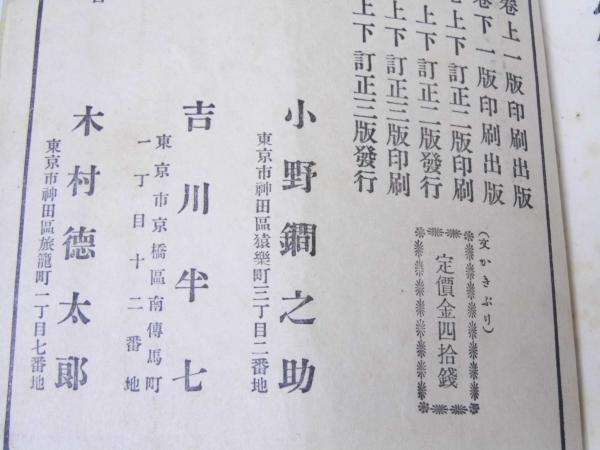 卷上一版印刷出版
卷下一版印刷出版
上下訂正二版印刷
上下訂正二版發行
上下訂正三版印刷
上下訂正三版發行
(文かきぶり)
定價金四拾錢
小野鐗之助
東京市神田區猿樂町三丁目二番地
吉川半七
東京市京橋區南傳馬町
一丁目十二番地
木村德太郎
東京市神田區旅籠町一丁目七番地